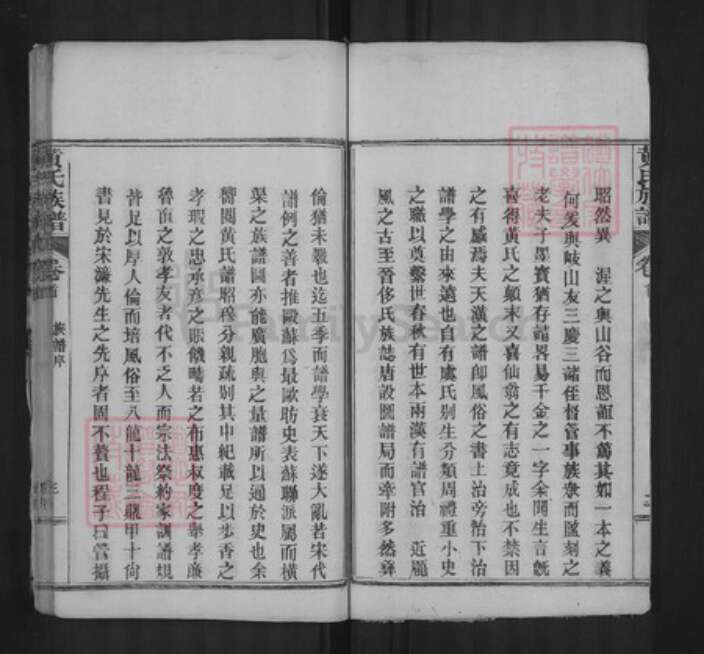 黃氏族譜
卷首
昭然異 渥之與山谷而恩誼不篤其如一本之義
何爰與岐山友三慶三諸侄督管事族衆而匯刻之
老夫子墨寶猶存諸畧易千金之一字余聞生言旣
喜得黃氏之顛末又喜仙翁之有志竟成也不禁因
之有感焉夫天潢之譜卽風俗之書上治旁治下治
譜學之由來遠也自有虞氏别生分類周禮重小史
之職以奠繫世春秋有世本兩漢有譜官治 近龐
風之古至晉侈氏族誌唐設圖譜局而牽附多然彛
倫猶未斁也迄五季而譜學衰天下遂大亂若宋代
譜例之善者推歐蘇爲最歐昉史表蘇聯派屬而橫
渠之族譜圖亦能廣胞與之量譜所以通於史也余
嘗閱黃氏譜昭穆分親疏别其中紀載足以步香之
孝瓊之忠承彦之賑饑疇若之布惠叔度之舉孝廉
魯直之敦孝友者代不乏人而宗法祭約家訓譜規
皆足以厚人倫而培風俗至八龍十龍三瓢甲十尙
書見於宋濂先生之先序者固不贅也程子曰管攝
黃氏族譜
卷首
族譜序
三